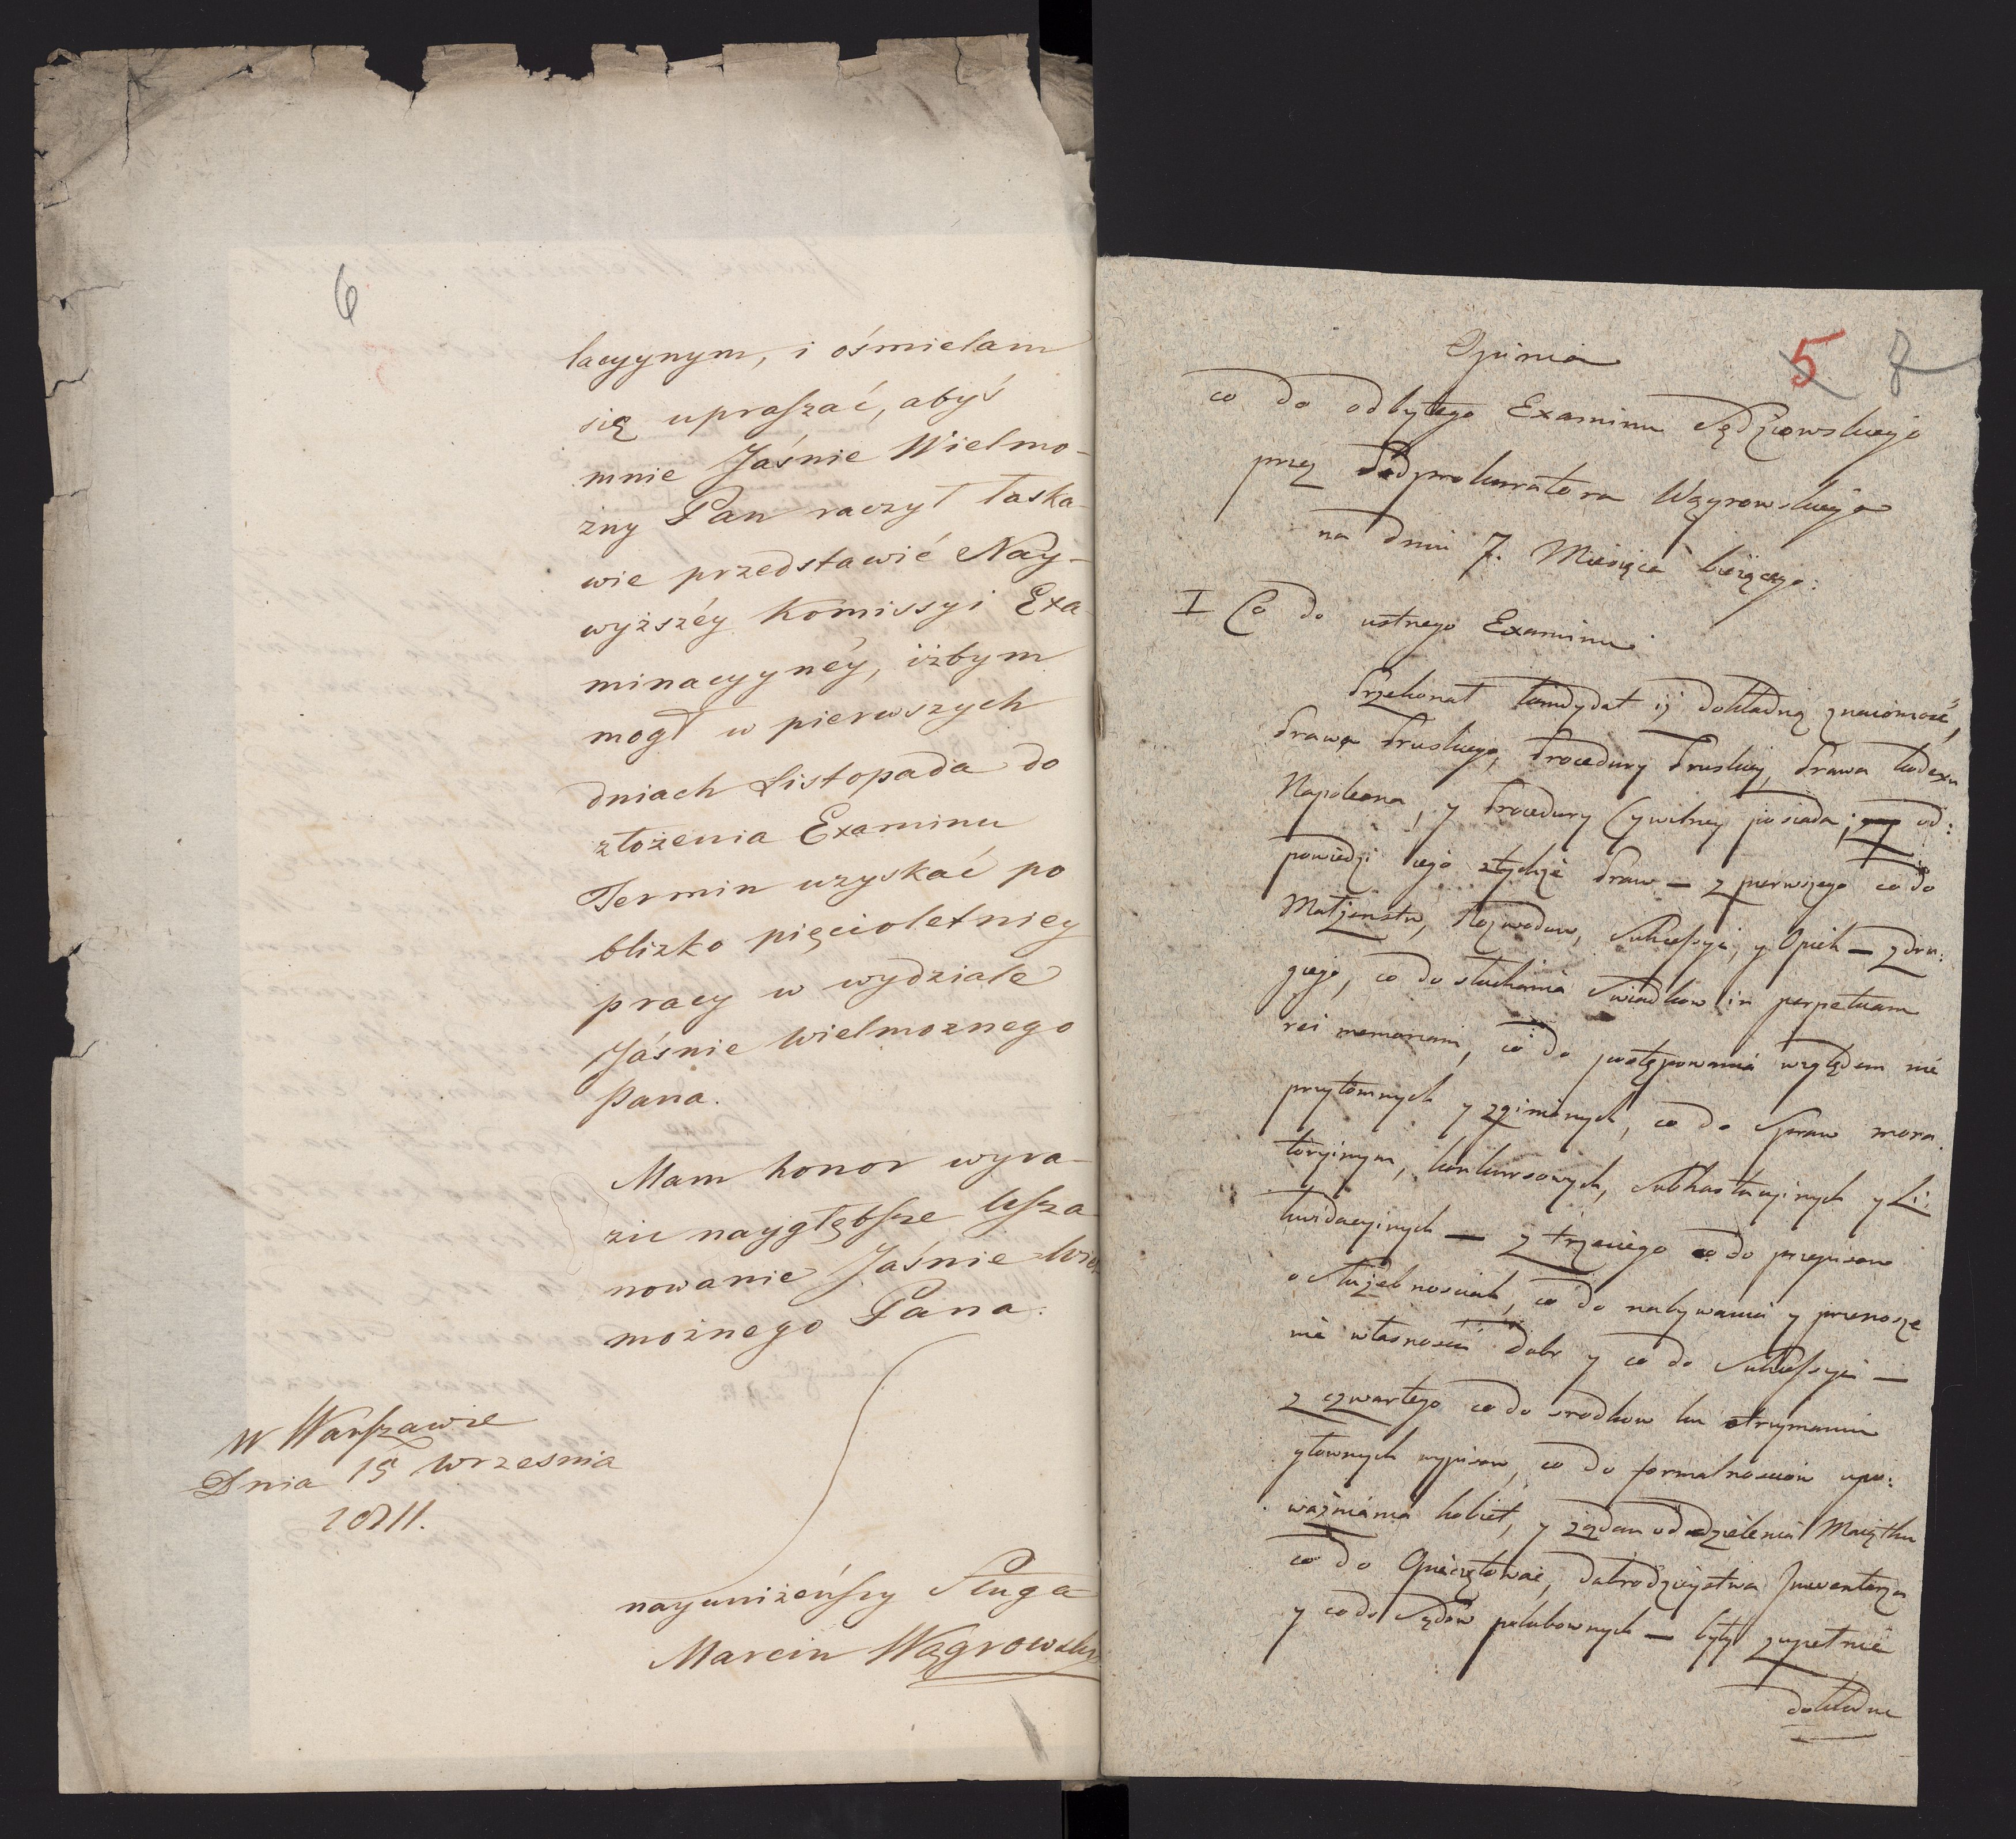 6
lacyynym, i ośmielam
się upraszać, abyś
mnie Jaśnie Wielmo-
żny Pan raczył łaska-
wie przedstawić Nay-
wyższéy Kommissyi Exa
minacyynéy, iżbym
mogł w pierwszych
dniach Listopada do
złożenia Examinu
Termin uzyskać po
blizko pięcioletniey
pracy w wydziale
Jaśnie Wielmoznego
Pana.
Mam honor wyra-
zić naygłębsze Usza
nowanie Jaśnie Wiel
możnego Pana.
W Warszawie
Dnia 15 Wrzesnia
1811.
nayuniżeńszy Sługa
Marcin Wągrowski
5 7
Opinia
co do odbytego Examinu Sędziowskiego
przez Podprokuratora Wągrowskiego
na dniu 7. Miesiąca bieżącego:
I Co do ustnego Examinu.
Przekonał kandydat iż dokładną znaiomość,
Prawa Pruskiego, Procedury Pruskiey, Prawa Kodexu
Napoleona, y Procedury Cywilney posiada; od:
powiedzi iego z tychże Praw — z pierwszego co do
Małżenstw, Rozwodow, Sukcessyi, y Opiek — z dru:
giego, co do słuchania Swiadkow in perpetuam
rei memoriam, co do postępowania względem nie
przytomnych y zginionych, co do Spraw mora
toryinym, konkursowych, Subhastacyinych y Li:
kwidacyinych — z trzeciego co do przepisow
o Służebnosciach, co do nabywania y przenosze
nia własnosci Dobr y co do Sukcessyi —
z czwartego co do srodkow ku otrzymaniu
głownych wypisow, co do formalnosciow upo:
ważniania kobiet, y żądan oddzielenia Maiątku
co do Opieczętowań, dobrodzieystwa Inwentarza
y co do Sądow polubownych — były zupełnie
dokładne